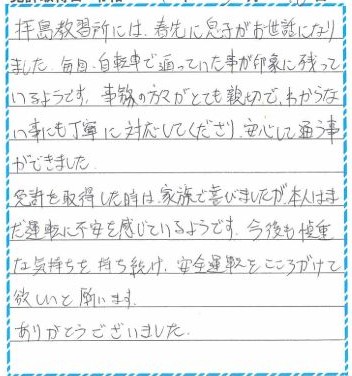 拝島教習所には、春先に息子がお世話になり
ました。毎日、自転車で通っていた事が印象に残って
いるようです。事務の方々がとても親切で、わからな
い事にも丁寧に対応してくださり、安心して通う事
ができました。
免許を取得した時は、家族で喜びましたが、本人はま
だ運転に不安を感じているようです。今後も慎重
な気持ちを持ち続け、安全運転をこころがけて
欲しいと願います。
ありがとうございました。